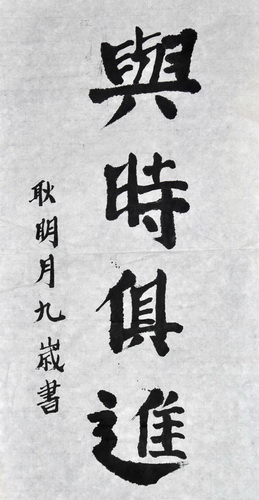 與時俱進
耿明月九歲書